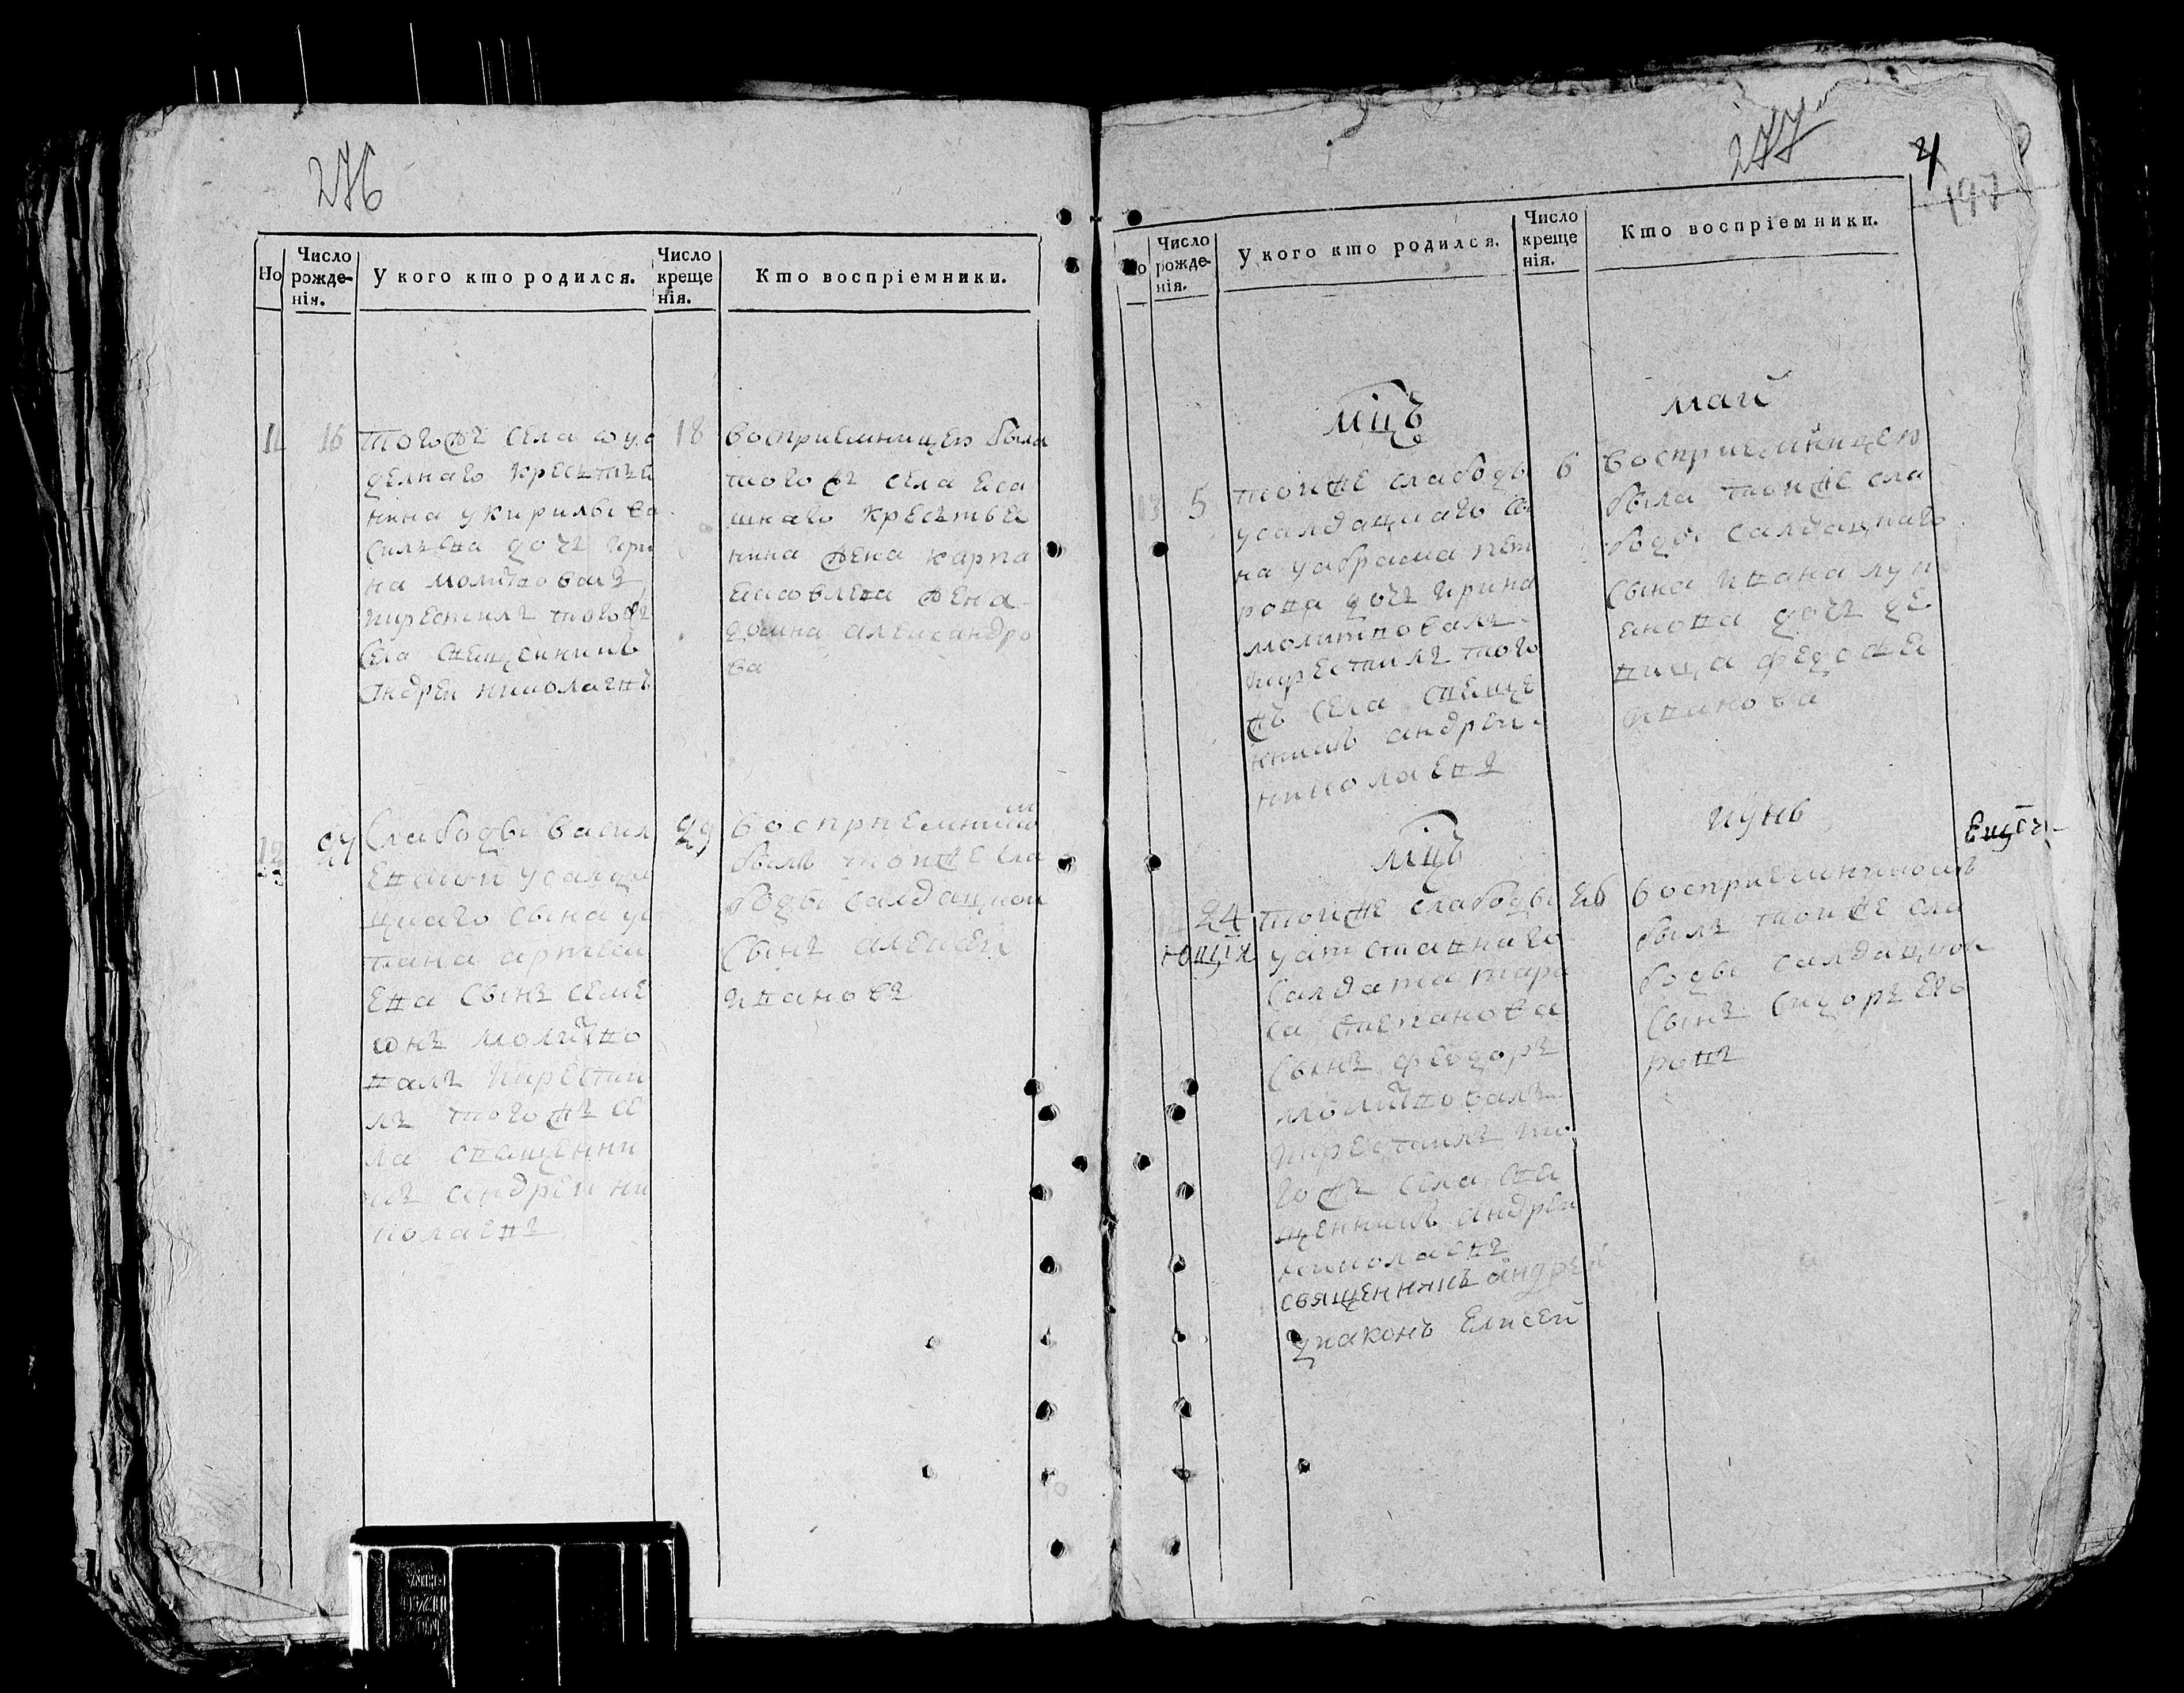 276
Но
Число рожденія.
У кого кто родился.
Число крещенія.
Кто воспріемники.
11 16
тогожъ села
делнаго кресътьа
нина укирилы ва
силъева дочь ири
на молитвовалъ
икрестилъ тогожъ
села священникъ
андреи николаевъ
18
восприемницею была
тогожъ села
шнаго кресътьа
нина жена карпа
жена
александро
ва
12 27
Слабоды васил
евской усалда
цкаго сына
артем
ева сынъ семе
онъ молитво
валъ икрести
лъ тогожъ се
ла священни
къ андреи ни
колаевъ
29
восприемником
былъ тоиже сла
боды салдацкои
сынъ алексеи
ивановъ
277
4
197
Но
Число рожденія.
У кого кто родился.
Число крещенія.
Кто воспріемники.
мцъ май
13 5
тоиже слабоды
усалдацкаго сы
на уабрама пет
рова дочь ирина
молитвовалъ
икрестилъ того
жъ села свяще
нникъ андреи
николаевъ
6
восприемницею
была тоиже сла
боды салдацкаго
сына ивана лук
янова дочь де
вица
иванова
мцъ иунь
24
тоиже слабоды
уатставнаго
салдата тара
са степанова
сынъ феодоръ
молитвовалъ
икрестилъ то
гожъ села свя
щенникъ андреи
николаевъ
26
восприемникомъ
былъ тоиже сла
боды салдацкои
сынъ сидоръ его
ровъ
священникъ андрей
диаконъ Елисей